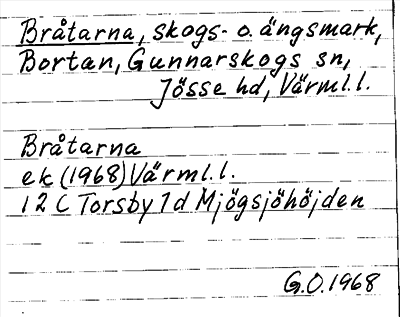 Bråtarna, skogs- o. ängsmark,
Bortan, Gunnarskogs sn,
Jösse hd, Värml.l.
Bråtarna
ek (1968) Värml.l.
12 C Torsby 7d Mjögsjöhöjden
G.O. 1968